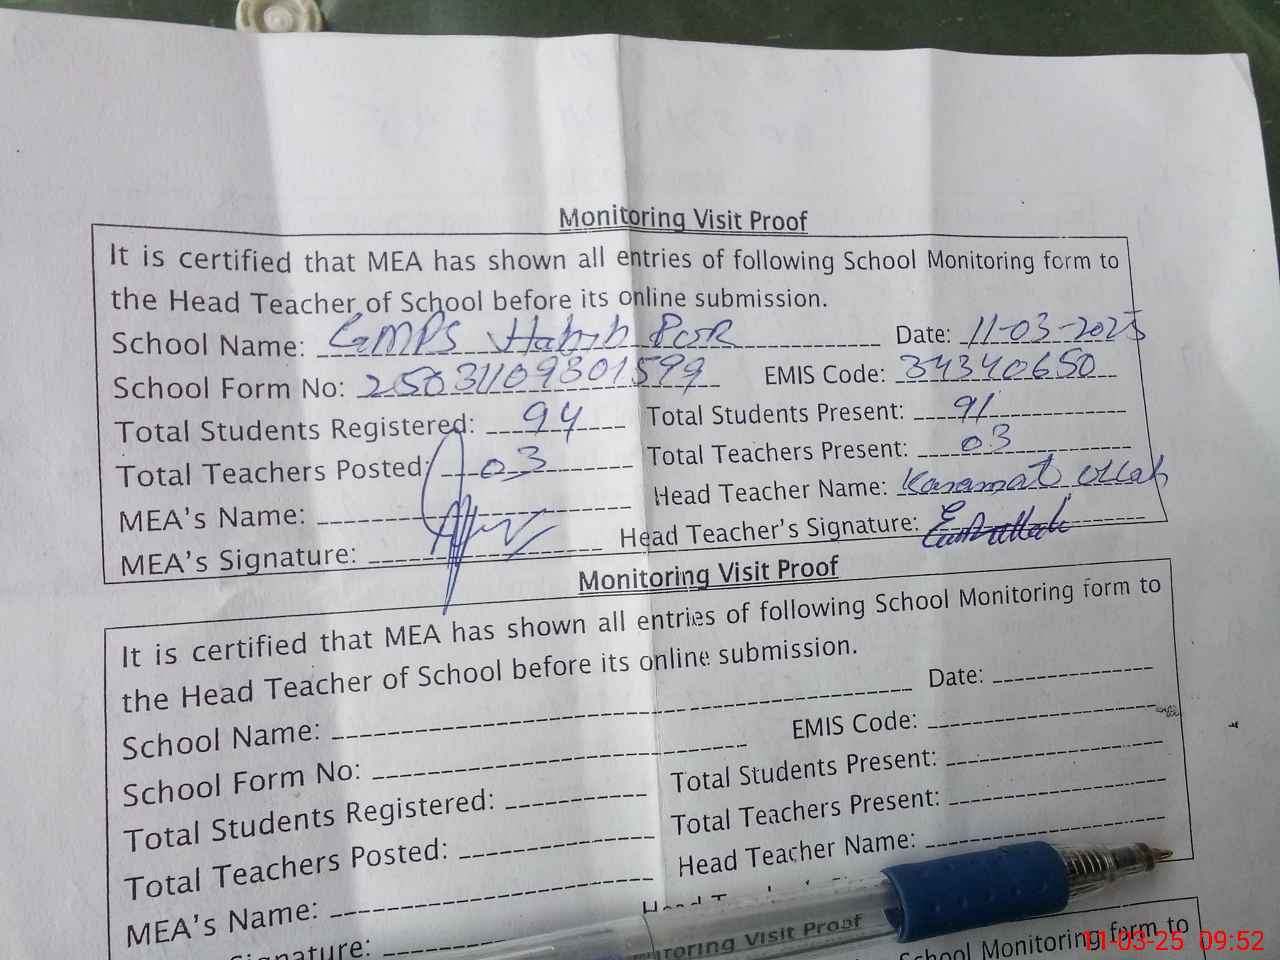 Monitoring Visit Proof
It is certified that MEA has shown all entries of following School Monitoring form to
the Head Teacher of School before its online submission.
School Name: GMPS Habib Pur Date: 11-03-2025
School Form No: 25031109301599 EMIS Code: 34340650
Total Students Registered: 94 Total Students Present: 91
Total Teachers Posted: 03 Total Teachers Present: 03
MEA's Name: Head Teacher Name: Karamat Ullah
MEA's Signature: Head Teacher's Signature:
Monitoring Visit Proof
It is certified that MEA has shown all entries of following School Monitoring form to
the Head Teacher of School before its online submission.
School Name: Date:
School Form No: EMIS Code:
Total Students Registered: Total Students Present:
Total Teachers Posted: Total Teachers Present:
MEA's Name: Head Teacher Name:
gnature:
toring Visit Proof
School Monitoring form to
11-03-25 09:52